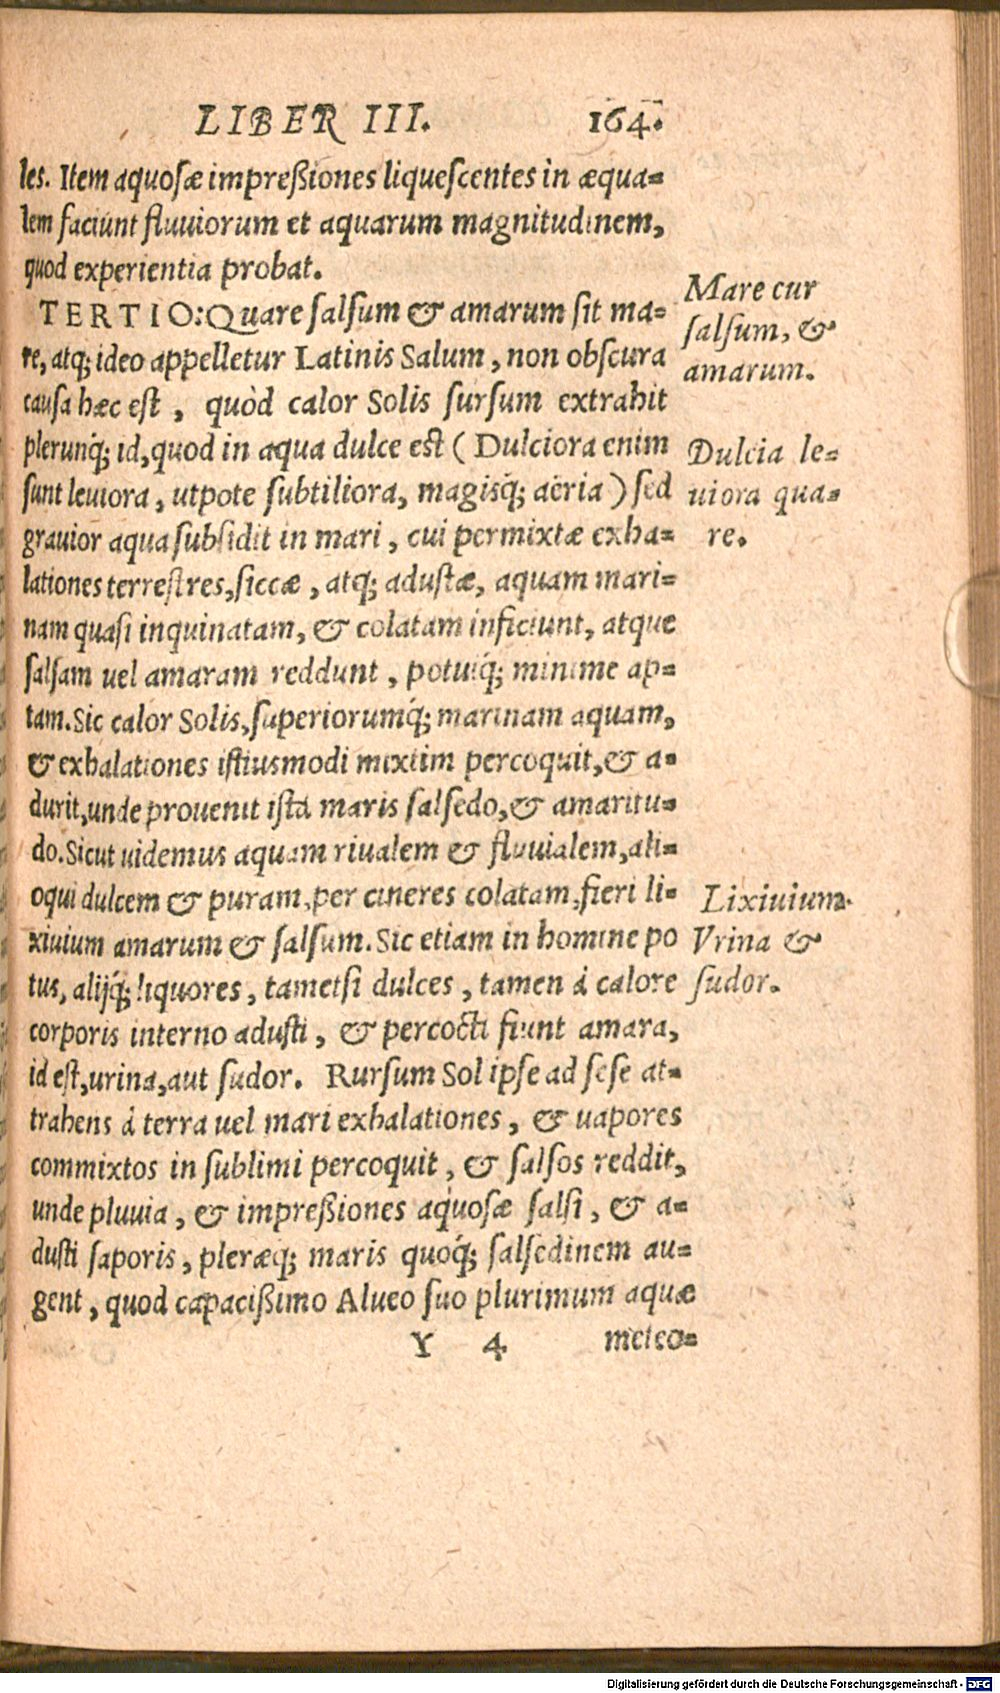 LIBER III. 164.
les. Item aquosæ impreßiones liquescentes in æqua=
lem faciunt fluuiorum et aquarum magnitudinem,
quod experientia probat.
TERTIO: Quare salsum & amarum sit ma=
re, atq; ideo appelletur Latinis Salum, non obscura
causa hæc est, quòd calor Solis sursum extrahit
plerunq́; id, quod in aqua dulce est (Dulciora enim
sunt leuiora, utpote subtiliora, magisq́; aëria) sed
grauior aqua subsidit in mari, cui permixtæ exha=
lationes terrestres, siccæ, atq; adustæ, aquam mari=
nam quasi inquinatam, & colatam inficiunt, atque
salsam uel amaram reddunt, potuiq́; minime ap=
tam. Sic calor Solis, superiorumq́; marinam aquam,
& exhalationes istiusmodi mixtim percoquit, & a=
durit, unde prouenit ista maris salsedo, & amaritu=
do. Sicut uidemus aquam riualem & fluuialem, ali=
oqui dulcem & puram, per cineres colatam, fieri li=
xiuium amarum & salsum. Sic etiam in homine po
tus, alijq́; liquores, tametsi dulces, tamen á calore
corporis interno adusti, & percocti fiunt amara,
id est, urina, aut sudor. Rursum Sol ipse ad sese at=
trahens á terra uel mari exhalationes, & uapores
commixtos in sublimi percoquit, & salsos reddit,
unde pluuia, & impreßiones aquosæ salsi, & a=
dusti saporis, pleræq; maris quoq́; salsedinem au=
gent, quod capacißimo Alueo suo plurimum aquæ
Y 4 meteo=
Mare cur
salsum, &
amarum.
Dulcia le=
uiora qua=
re.
Lixiuium.
Vrina &
sudor.
Digitalisierung gefördert durch die Deutsche Forschungsgemeinschaft - DFG